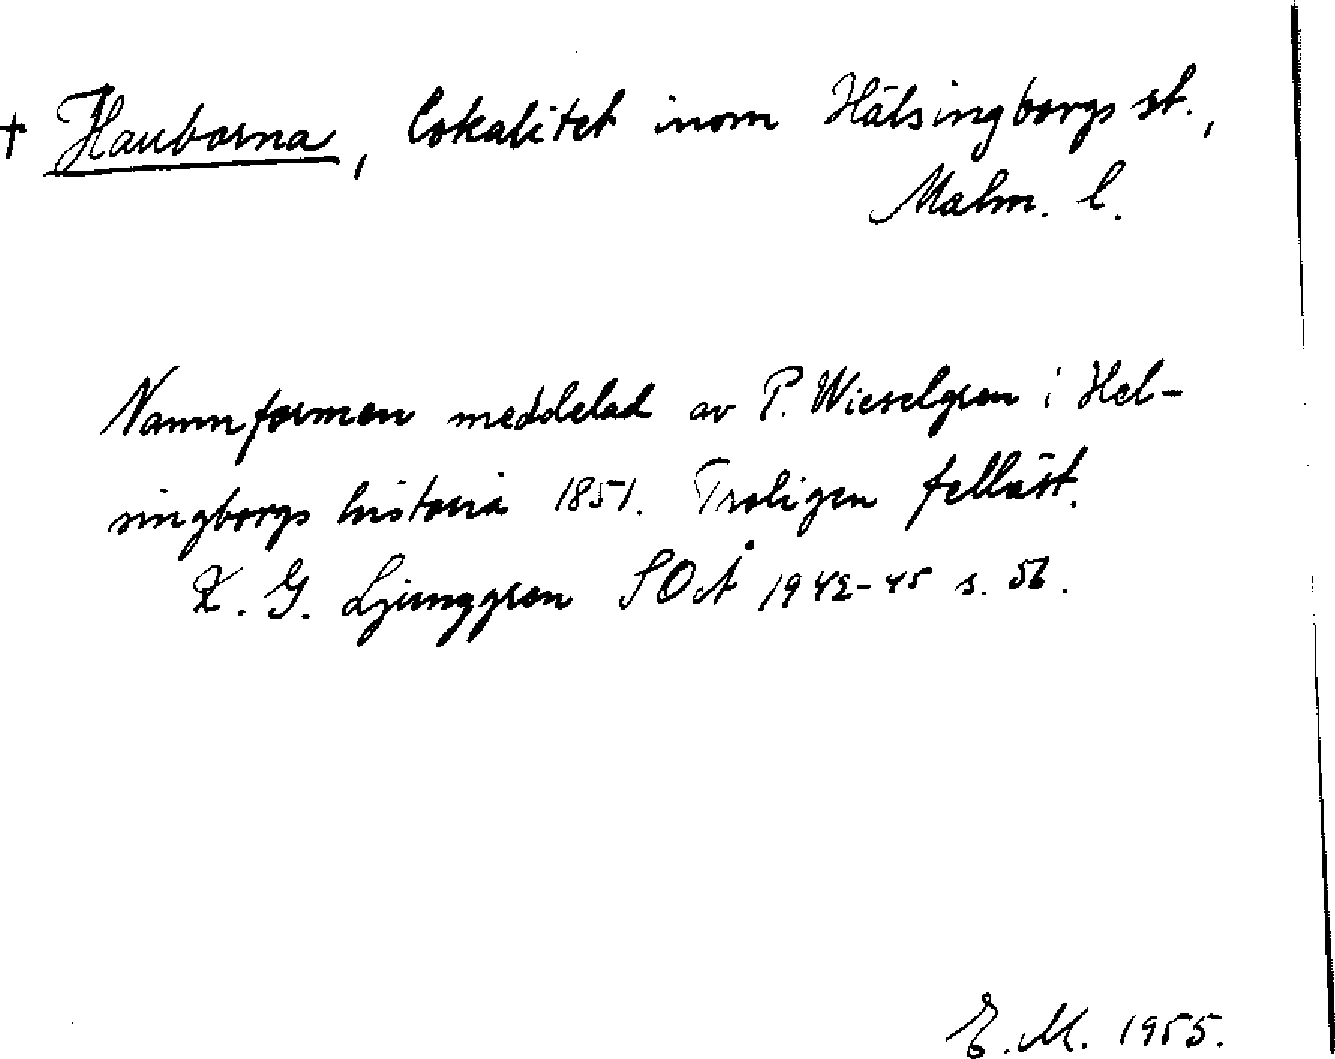 † Hauborna, lokalitet inom Hälsingborgs st.,
Malm. l.
Namnformen meddelad av P. Wieselgren i Hel-
singborgs historia 1851. Troligen felläst.
K. G. Ljunggren SOÅ 1942-45 s. 56.
E. M. 1955.